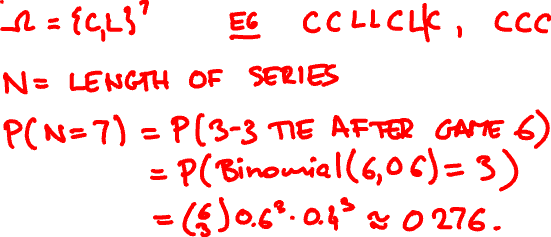 Ω = {C,L}⁷ EG CCLLCLC, CCC
N = LENGTH OF SERIES
P(N=7) = P(3-3 TIE AFTER GAME 6)
= P(Binomial(6,0.6) = 3)
= (6 3) 0.6³ · 0.4³ ≈ 0.276.